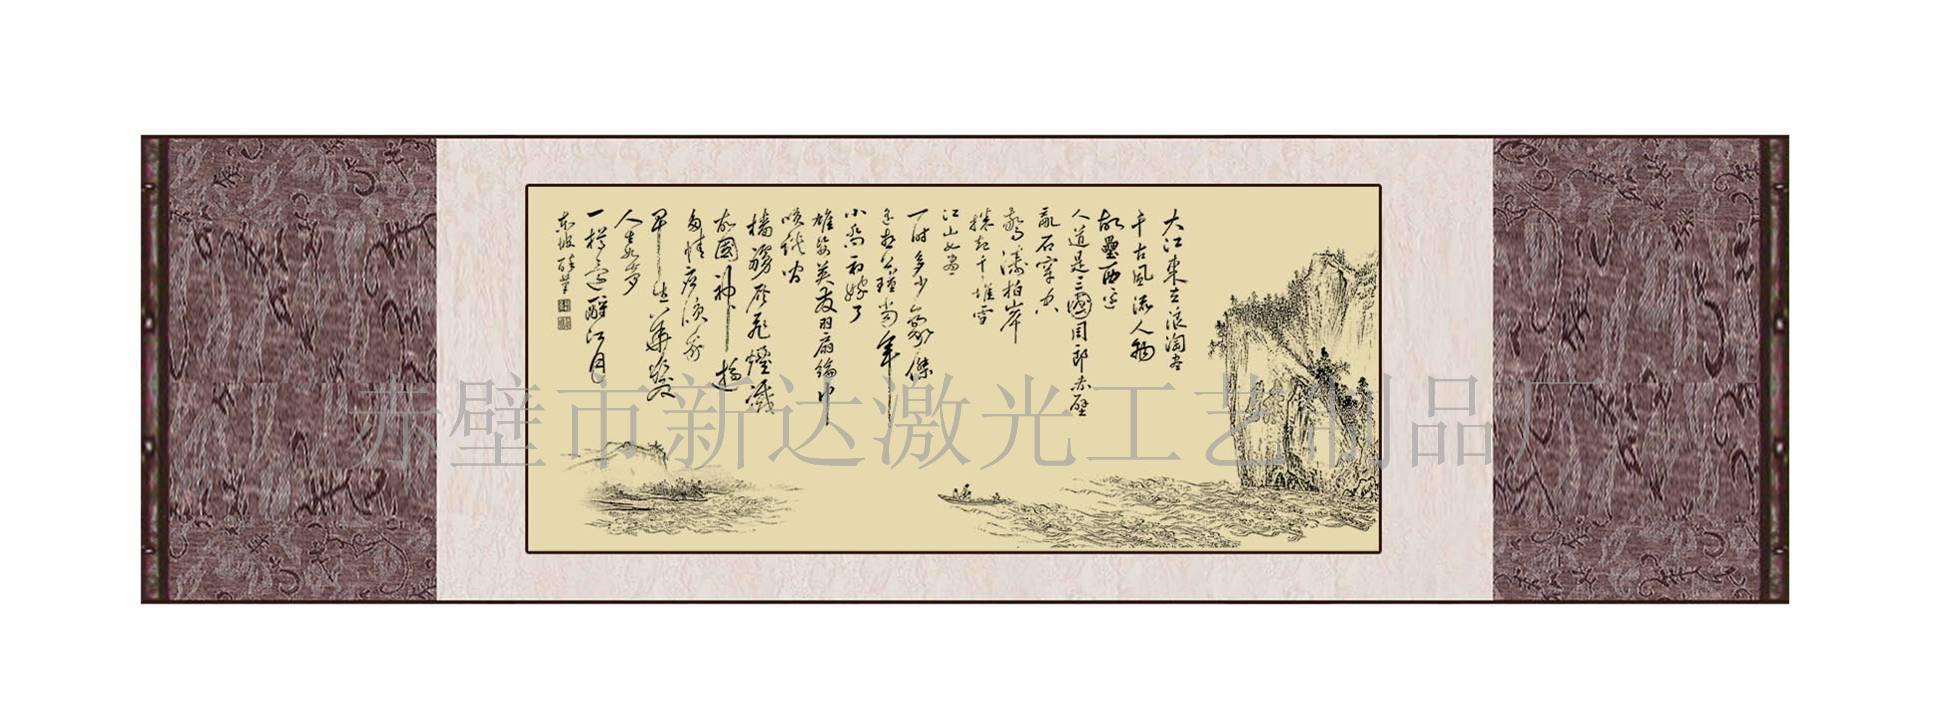 大江東去浪淘盡
千古風流人物
故壘西邊
人道是三國周郎赤壁
亂石穿空
驚濤拍岸
捲起千堆雪
江山如畫
一時多少豪傑
遙想公瑾當年
小喬初嫁了
雄姿英發羽扇綸巾
笑談間
檣艣灰飛煙滅
故國神遊
多情應笑我
早生華髮
人生如夢
一樽還酹江月
東坡醉筆
赤壁市新达激光工艺制品厂